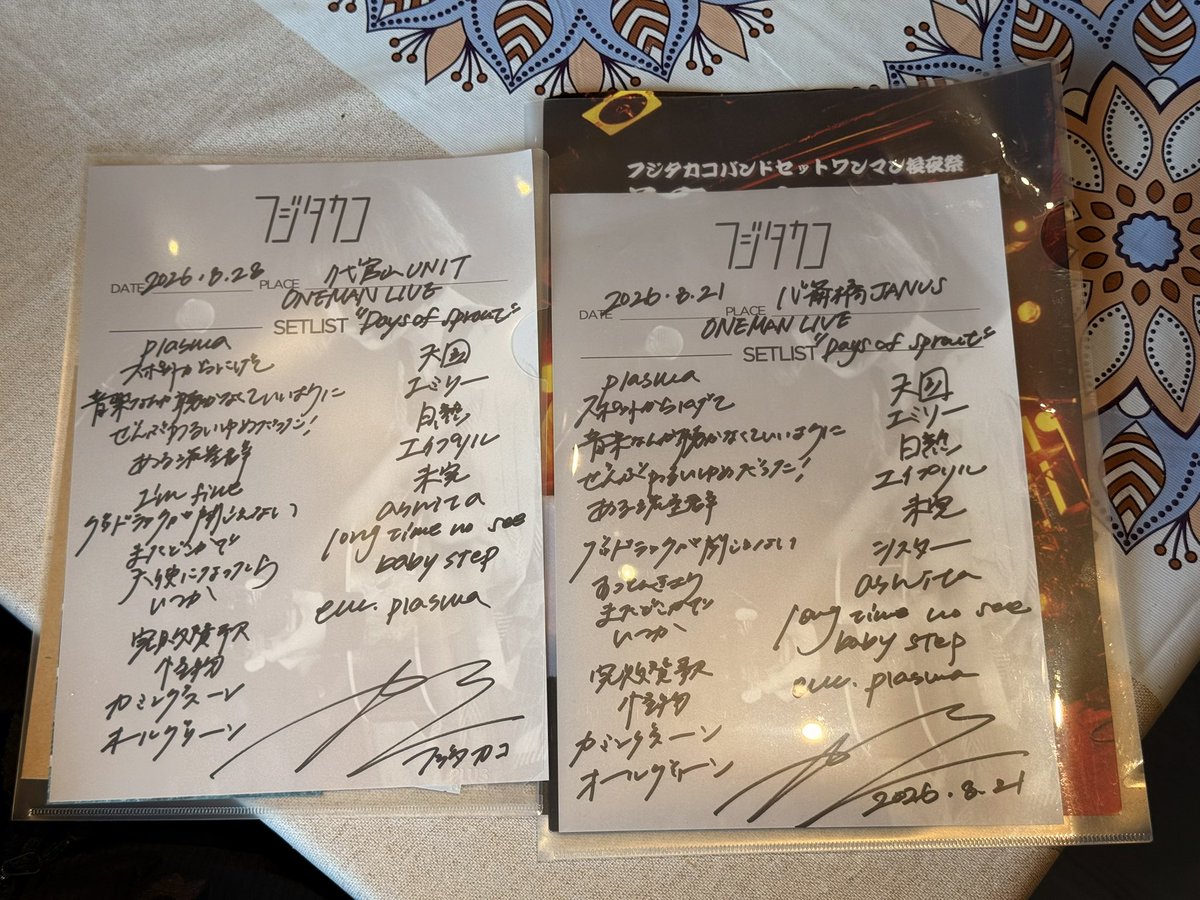 フジタカコ
DATE 2026.8.28 PLACE 代官山UNIT
ONEMAN LIVE
SETLIST "Days of sprout"
plasma
スポットからにげて
音楽なんか聴かなくていいように
ぜんぶわるいゆめだった!
ある流星群
I'm fine
グッドラックが聞こえない
またどこかで
天使になったら
いつか
完敗賛歌
怪物
カミングスーン
オールグリーン
天国
エミリー
白熱
エイプリル
未完
ashita
long time no see
baby step
enc. plasma
フジタカコ
フジタカコバンドセットワンマン後夜祭
フジタカコ
DATE 2026.8.21 PLACE 心斎橋JANUS
ONEMAN LIVE
SETLIST "Days of sprout"
plasma
スポットからにげて
音楽なんか聴かなくていいように
ぜんぶわるいゆめだった!
ある流星群
グッドラックが聞こえない
またどこかで
いつか
完敗賛歌
怪物
カミングスーン
オールグリーン
天国
エミリー
白熱
エイプリル
未完
シスター
ashita
long time no see
baby step
enc. plasma
2026.8.21